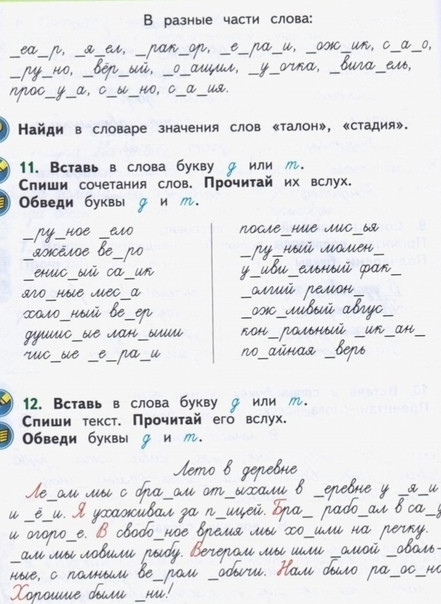 В разные части слова:
_еа_р, _я_ел, _рак_ор, _е_ра_и, _ож_ик, с_а_о,
_ру_но, _вёр_ый, _о_ащил, _у_очка, _вига_ель,
прос_у_а, с_ы_но, с_а_ия.
Найди в словаре значения слов «талон», «стадия».
11. Вставь в слова букву д или т.
Спиши сочетания слов. Прочитай их вслух.
Обведи буквы д и т.
_ру_ное _ело
_яжёлое ве_ро
_енис_ый са_ик
яго_ные мес_а
холо_ный ве_ер
душис_ые лан_ыши
чис_ые _е_ра_и
после_ние лис_ья
_ру_ный момен_
у_иви_ельный фак_
_олгий ремон_
_ож_ливый авгус_
кон_рольный _ик_ан_
по_айная _верь
12. Вставь в слова букву д или т.
Спиши текст. Прочитай его вслух.
Обведи буквы д и т.
Лето в деревне
Ле_ом мы с бра_ом от_ыхали в _еревне у _я_и
и _ё_и. Я ухаживал за п_ицей. Бра_ рабо_ал в са_у
и огоро_е. В свобо_ное время мы хо_или на речку.
_ам мы ловили рыбу. Вечером мы шли _омой _оволь-
ные, с полным ве_ром _обычи. Нам было ра_ос_но.
Хорошие были _ни!